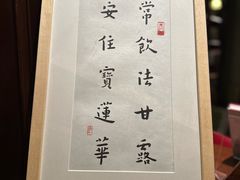 常飲法甘露
安住寶蓮華